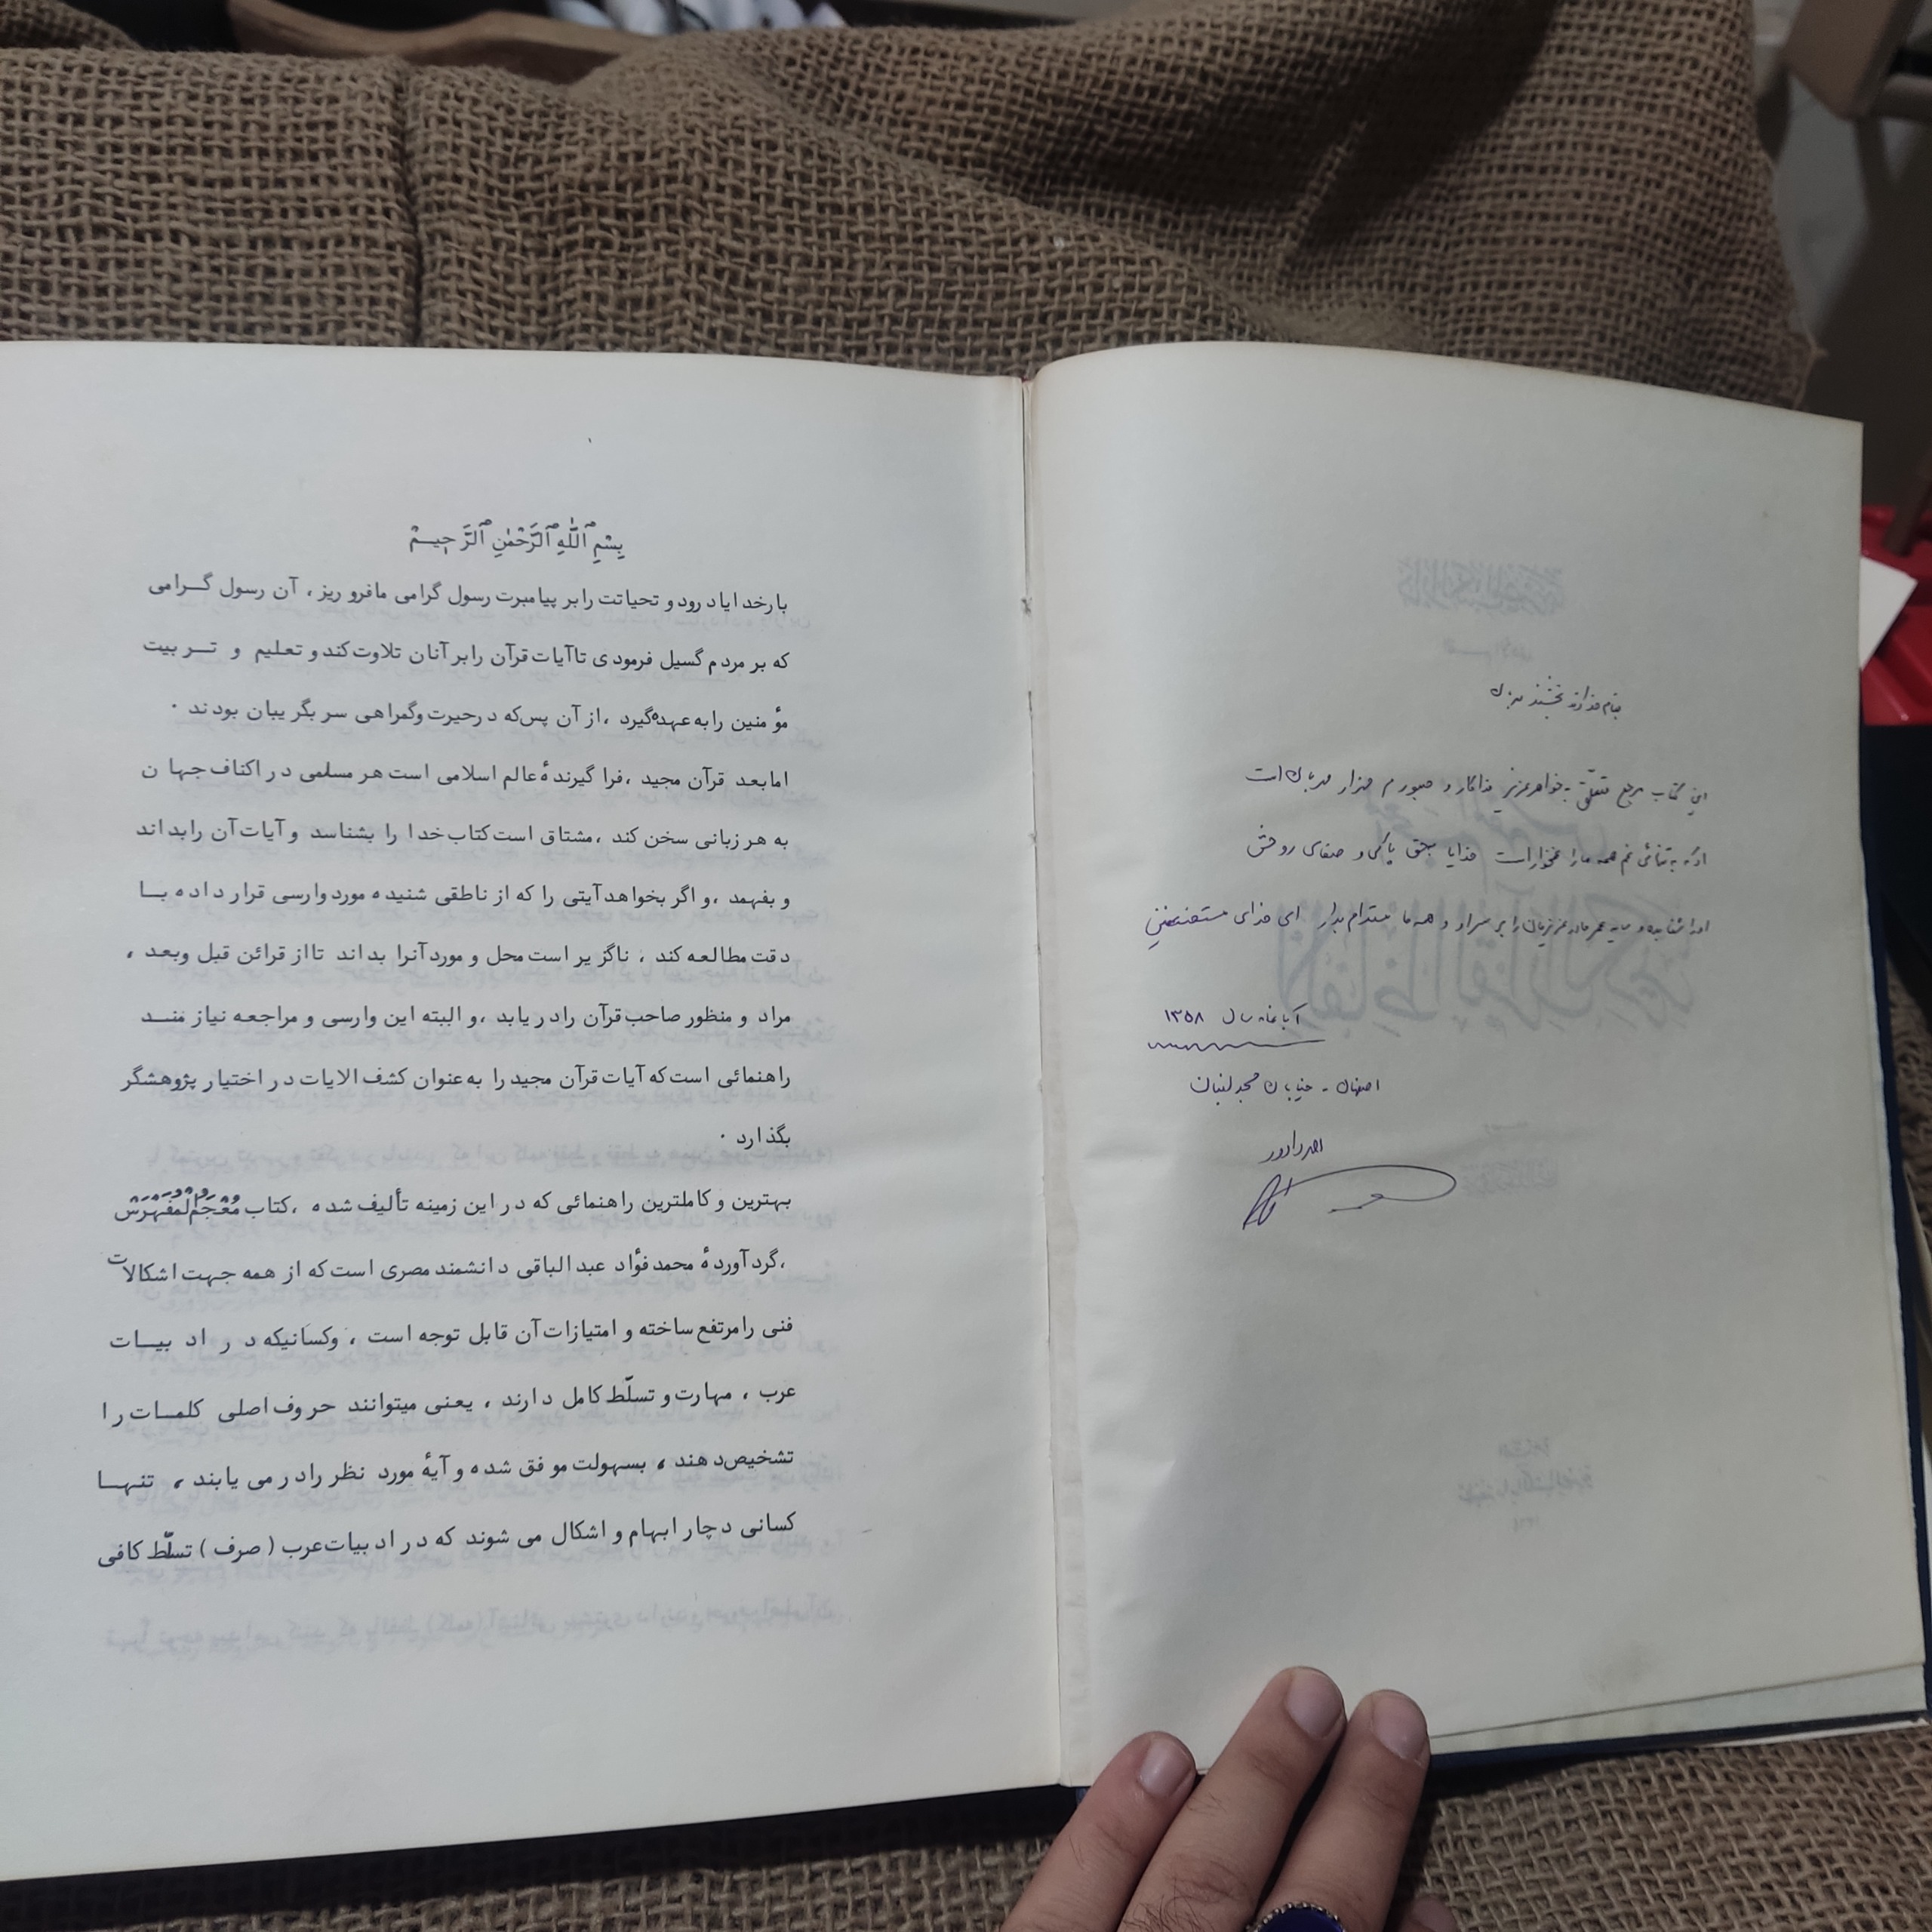 بنام خداوند بخشنده مهربان
این کتاب مرجع متعلق به خواهر عزیز فداکار و صبورم هزار مهربان است
که به تنهائی غم همه ما را غمخوار است خدایا بحق پاکی و صفای روحش
او را شفا بده و سایه مادر عزیزمان را بر سر او و همه ما مستدام بدار ای خدای مستضعفین
آبانماه سال ۱۳۵۸
اصفهان - خیابان مسجد لنبان
بِسْمِ ٱللَّهِ ٱلرَّحْمٰنِ ٱلرَّحِيمْ
بارخدایادرود و تحیاتت رابر پیامبرت رسول گرامی مافرو ریز ، آن رسول گـرامی
که بر مردم گسیل فرمودی تاآیات قرآن رابر آنان تلاوت کند و تعلیم و تـربیت
مؤ منین رابه عهده گیرد ،از آن پس‌که درحیرت وگمراهی سر بگر یبان بودند ٠
امابعد قرآن مجید ،فرا گیرندهٔ عالم اسلامی است هر مسلمی در اکناف جهان
به هر زبانی سخن کند ،مشتاق است کتاب خدا را بشناسد و آیات آن رابداند
و بفهمد ،و اگر بخواهد آیتی را که از ناطقی شنیده مورد وارسی قرار داده بـا
دقت مطالعه کند ، ناگزیر است محل و مورد آنرا بداند تااز قرائن قبل وبعد ،
مراد و منظور صاحب قرآن رادریابد ،و البته این وارسی و مراجعه نیاز منـد
راهنمائی است که آیات قرآن مجید را به عنوان کشف الایات در اختیار پژوهشگر
بگذارد ٠
بهترین و کاملترین راهنمائی که در این زمینه تألیف شده ،کتاب مُعْجَمُ‌الْمُفَهْرَسْ
،گردآوردهٔ محمد فؤاد عبدالباقی دانشمند مصری است که از همه جهت اشکالات
فنی رامرتفع ساخته و امتیازات آن قابل توجه است ، وکسانیکه در ادبیـات
عرب ، مهارت و تسلّط کامل دارند ، یعنی میتوانند حروف اصلی کلمـات را
تشخیص دهند ، بسهولت موفق شده و آیهٔ مورد نظر رادرمی یابند ، تنهـا
کسانی دچار ابهام و اشکال می شوند که در ادبیات عرب ( صرف ) تسلّط کافی